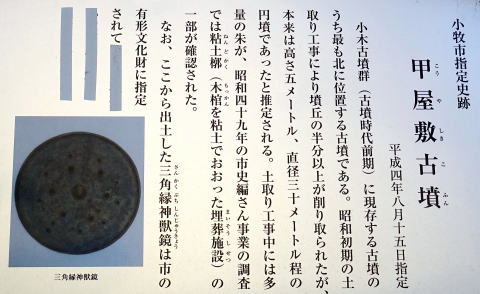 小牧市指定史跡
甲屋敷古墳
こうやしきこふん
平成四年八月十五日指定
小木古墳群（古墳時代前期）に現存する古墳の
うち最も北に位置する古墳である。昭和初期の土
取り工事により墳丘の半分以上が削り取られたが、
本来は高さ五メートル、直径三十メートル程の
円墳であったと推定される。土取り工事中には多
量の朱が、昭和四十九年の市史編さん事業の調査
では粘土槨（木棺を粘土でおおった埋葬施設）の
ねんどかく
もっかん
まいそうしせつ
一部が確認された。
なお、ここから出土した三角縁神獣鏡は市の
さんかくぶちしんじゅうきょう
有形文化財に指定
されて
三角縁神獣鏡